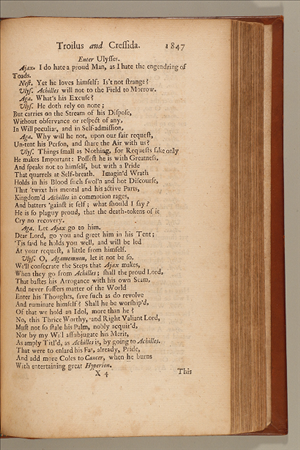 Troilus and Cressida. 1847
Enter Ulysses.
Ajax. I do hate a proud Man, as I hate the engendring of
Toads.
Nest. Yet he loves himself: Is't not strange?
Ulys. Achilles will not to the Field to Morrow.
Aga. What's his Excuse?
Ulys. He doth rely on none;
But carries on the Stream of his Dispose,
Without observance or respect of any,
In Will peculiar, and in Self-admission.
Aga. Why will he not, upon our fair request,
Un-tent his Person, and share the Air with us?
Ulys. Things small as Nothing, for Requests sake only
He makes Important: Possest he is with Greatness,
And speaks not to himself, but with a Pride
That quarrels at Self-breath. Imagin'd Wrath
Holds in his Blood such swol'n and hot Discourse,
That 'twixt his mental and his active Parts,
Kingdom'd Achilles in commotion rages,
And batters 'gainst it self; what should I say?
He is so plaguy proud, that the death-tokens of it
Cry no recovery.
Aga. Let Ajax go to him.
Dear Lord, go you and greet him in his Tent;
'Tis said he holds you well, and will be led
At your request, a little from himself.
Ulys. O, Agamemnon, let it not be so.
We'll consecrate the Steps that Ajax makes,
When they go from Achilles; shall the proud Lord,
That bastes his Arrogance with his own Seam,
And never suffers matter of the World
Enter his Thoughts, save such as do revolve
And ruminate himself? Shall he be worship'd,
Of that we hold an Idol, more than he?
No, this Thrice Worthy, and Right Valiant Lord,
Must not so stale his Palm, nobly acquir'd,
Nor by my Will assubjugate his Merit,
As amply Titl'd, as Achilles is, by going to Achilles.
That were to enlard his Fat, already, Pride,
And add more Coles to Cancer, when he burns
With entertaining great Hyperion.
X 4 This